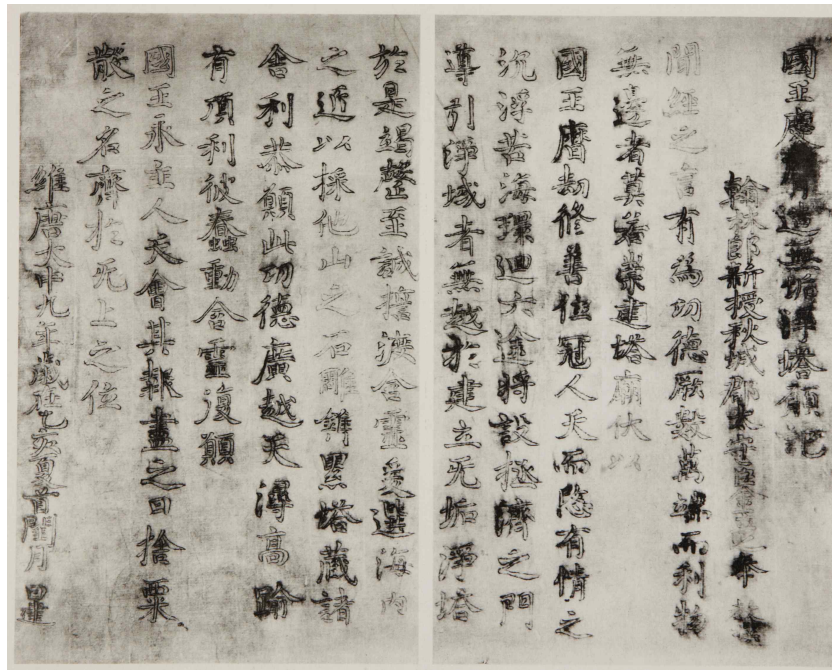 國王慶膺造無垢淨塔願記
翰林郎新授秋城郡太守臣金立之奉 教撰
聞經之言有為功德厥數萬端而利物
無邊者莫若崇建塔廟伏以
國王曆劫修善位冠人天而愍有情之
沉浮苦海環迴六途將設拯濟之門
導引淨域者無越於建立无垢淨塔
於是竭盡至誠誓拔含靈爰選海內
之匠以採他山之石雕鐫累塔藏諸
舍利恭願此功德廣越天潯高踰
有頂利彼蠢動含靈復願
國王永主人天會其報盡之日捨粟
散之名齊於无上之位
維唐大中九年歲在乙亥夏首閏月日建